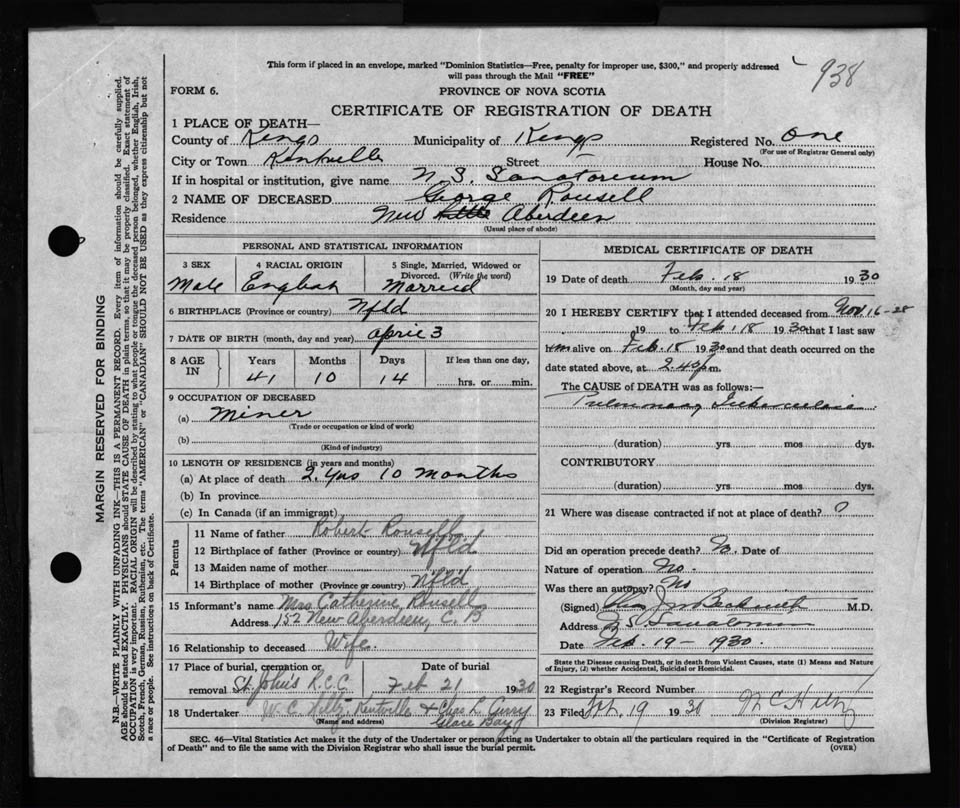 This form if placed in an envelope, marked "Dominion Statistics—Free, penalty for improper use, $300," and properly addressed
will pass through the Mail "FREE"
938
FORM 6.
PROVINCE OF NOVA SCOTIA
CERTIFICATE OF REGISTRATION OF DEATH
1 PLACE OF DEATH—
County of Kings Municipality of Kings Registered No. One
(For use of Registrar General only)
City or Town Kentville Street — House No.
If in hospital or institution, give name N. S. Sanatorium
2 NAME OF DECEASED George Rousell
Residence New Aberdeen
(Usual place of abode)
PERSONAL AND STATISTICAL INFORMATION
3 SEX 4 RACIAL ORIGIN 5 Single, Married, Widowed or Divorced. (Write the word)
Male English Married
6 BIRTHPLACE (Province or country) Nfld
7 DATE OF BIRTH (month, day and year) April 3
8 AGE IN Years Months Days If less than one day,
41 10 14 hrs. or min.
9 OCCUPATION OF DECEASED
(a) Miner
(Trade or occupation or kind of work)
(b)
(Kind of industry)
10 LENGTH OF RESIDENCE (in years and months)
(a) At place of death 2 yrs 10 months
(b) In province
(c) In Canada (if an immigrant)
Parents
11 Name of father Robert Rousell
12 Birthplace of father (Province or country) Nfld
13 Maiden name of mother
14 Birthplace of mother (Province or country) Nfld
15 Informant's name Mrs Catherine Rousell
Address 152 New Aberdeen, C. B
16 Relationship to deceased Wife.
17 Place of burial, cremation or removal St. John's R.C.C. Date of burial Feb 21 1930
18 Undertaker W. C. Hiltz, Kentville + Chas L. Curry
(Name and address) Glace Bay
MEDICAL CERTIFICATE OF DEATH
19 Date of death Feb. 18 1930
(Month, day and year)
20 I HEREBY CERTIFY that I attended deceased from Nov. 16-28
19 to Feb. 18 1930 that I last saw
him alive on Feb. 18 1930 and that death occurred on the
date stated above, at 2.40 p.m.
The CAUSE of DEATH was as follows:—
Pulmonary Tuberculosis
(duration) yrs. mos. dys.
CONTRIBUTORY
(duration) yrs. mos. dys.
21 Where was disease contracted if not at place of death? ?
Did an operation precede death? No. Date of
Nature of operation No.
Was there an autopsy? No
(Signed) M.D.
Address N S Sanatorium
Date Feb. 19 - 1930.
State the Disease causing Death, or in death from Violent Causes, state (1) Means and Nature
of Injury, (2) whether Accidental, Suicidal or Homicidal.
22 Registrar's Record Number
23 Filed Feb. 19 1930 W C Hiltz
(Division Registrar)
SEC. 46—Vital Statistics Act makes it the duty of the Undertaker or person acting as Undertaker to obtain all the particulars required in the "Certificate of Registration
of Death" and to file the same with the Division Registrar who shall issue the burial permit.
(OVER)
MARGIN RESERVED FOR BINDING
N.B.—WRITE PLAINLY WITH UNFADING INK—THIS IS A PERMANENT RECORD. Every item of information should be carefully supplied.
AGE should be stated EXACTLY. PHYSICIANS should STATE CAUSE OF DEATH in plain terms, so that it may be properly classified. Exact statement of
OCCUPATION is very important. RACIAL ORIGIN will be described by stating to what people or tongue the deceased person belonged, whether English, Irish,
Scotch, French, German, Russian, Ruthenian, etc. The terms "AMERICAN" or "CANADIAN" SHOULD NOT BE USED as they express citizenship but not
a race or people. See instructions on back of Certificate.